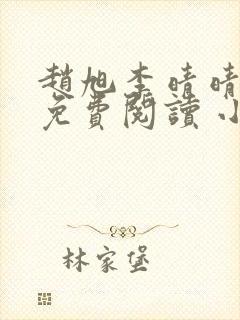 趙旭李晴晴
免費閱讀小
林家堡